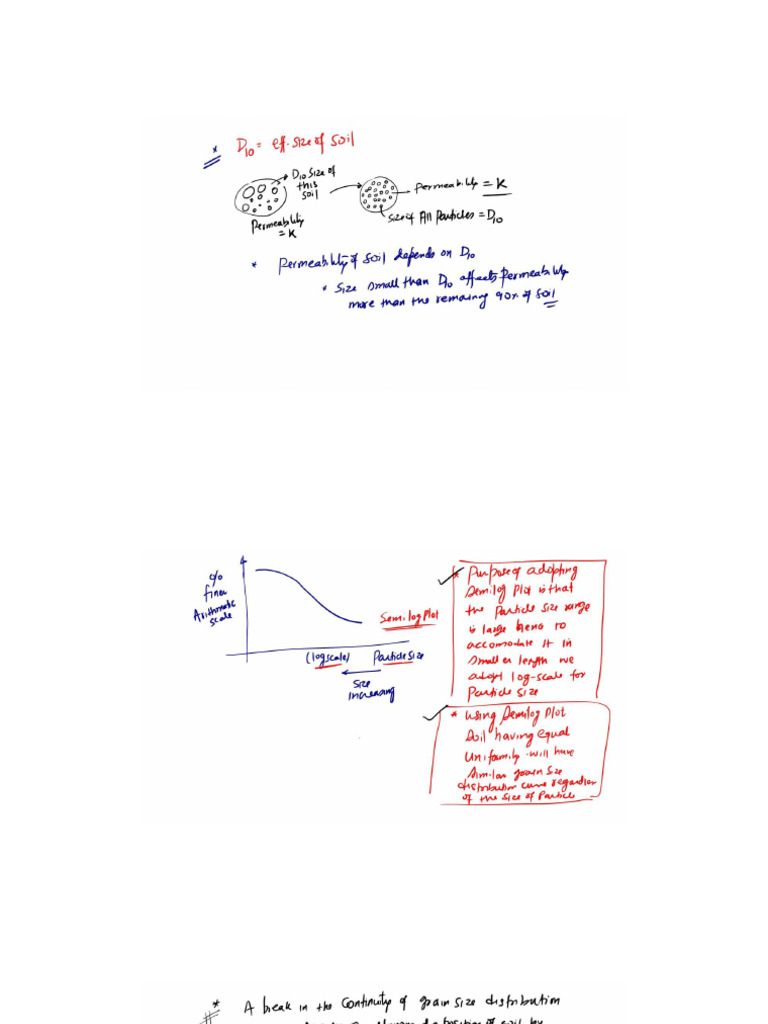 * D10 = eff. size of soil
D10 size of
this
soil
Permeability
= K
Permeability = K
Size of All Particles = D10
* Permeability of soil depends on D10
* Size small than D10 affects Permeability
more than the remaining 90% of soil
% 
finer
Arithmetic
scale
Semilog Plot
(log scale) Particle Size
Size
increasing
* Purpose of adopting
Semilog Plot is that
the Particle size range
is large hence to
accomodate it in
smaller length we
adopt log-scale for
Particle size
* Using Semilog Plot
Soil having equal
Uniformity will have
Similar grain size
distribution curve
of the size of Particle
* A break in the Continuity of grain size distribution
of soil by